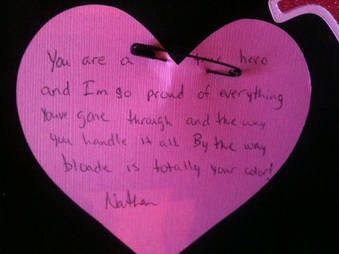 You are a true hero
and I'm so proud of everything
you've gone through and the way
you handle it all By the way
blonde is totally your color!
Nathan